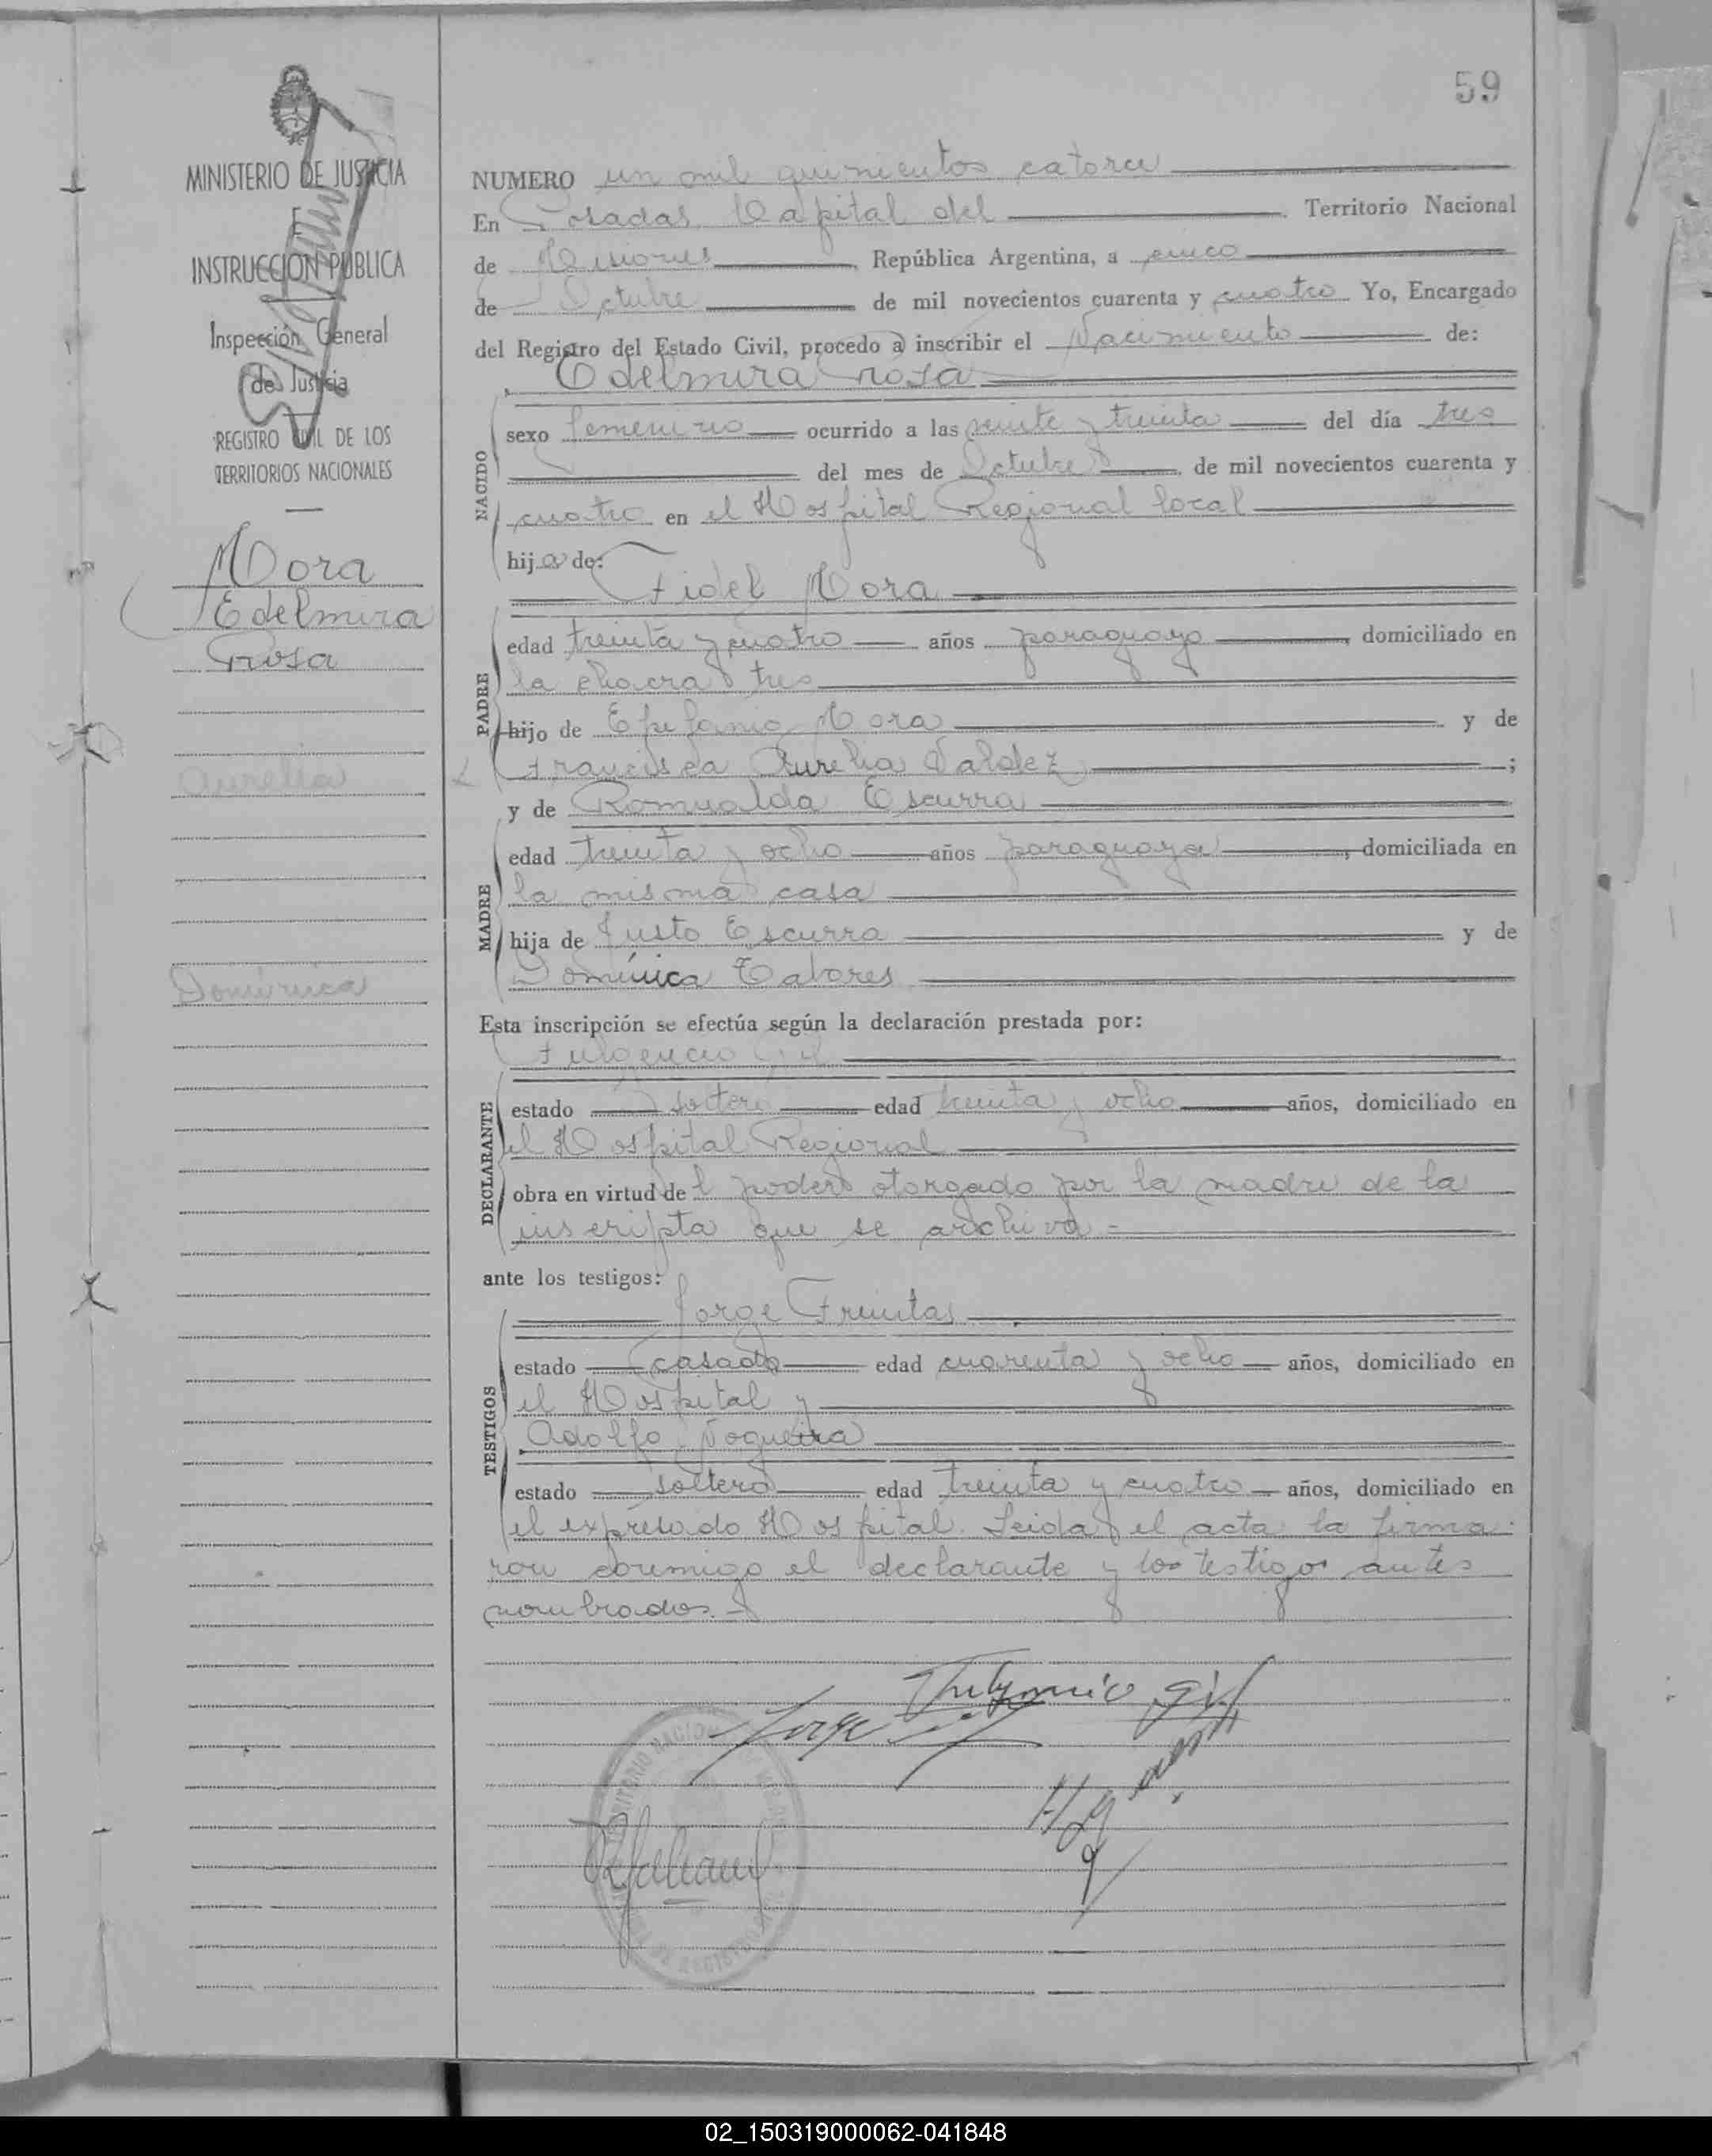 59
MINISTERIO DE JUSTICIA
E
INSTRUCCION PUBLICA
Inspección General
de Justicia
REGISTRO CIVIL DE LOS
TERRITORIOS NACIONALES
Mora
Edelmira
Rosa
Aurelia
Dominica
NUMERO un mil quinientos catorce
En Posadas Capital del Territorio Nacional
de Misiones, República Argentina, a cinco
de Octubre de mil novecientos cuarenta y cuatro Yo, Encargado
del Registro del Estado Civil, procedo a inscribir el Nacimiento de:
Edelmira Rosa
NACIDO
sexo femenino ocurrido a las veinte y treinta del día tres
del mes de Octubre de mil novecientos cuarenta y
cuatro en el Hospital Regional local
hija de:
Fidel Mora
PADRE
edad treinta y cuatro años paraguayo, domiciliado en
la chacra tres
hijo de Epifanio Mora y de
Francisca Aurelia Valdez;
y de Romualda Escurra
MADRE
edad treinta y ocho años paraguaya, domiciliada en
la misma casa
hija de Justo Escurra y de
Dominica Tabores
Esta inscripción se efectúa según la declaración prestada por:
Fulgencio Gil
DECLARANTE
estado soltero edad treinta y ocho años, domiciliado en
el Hospital Regional
obra en virtud del poder otorgado por la madre de la
inscripta que se archiva -
ante los testigos:
Jorge Freintas
TESTIGOS
estado casado edad cuarenta y ocho años, domiciliado en
el Hospital y
Adolfo Nogueira
estado soltero edad treinta y cuatro años, domiciliado en
el expresado Hospital. Leida el acta la firma
ron conmigo el declarante y los testigos antes
nombrados.-
Fulgencio Gil
Jorge
02_150319000062-041848